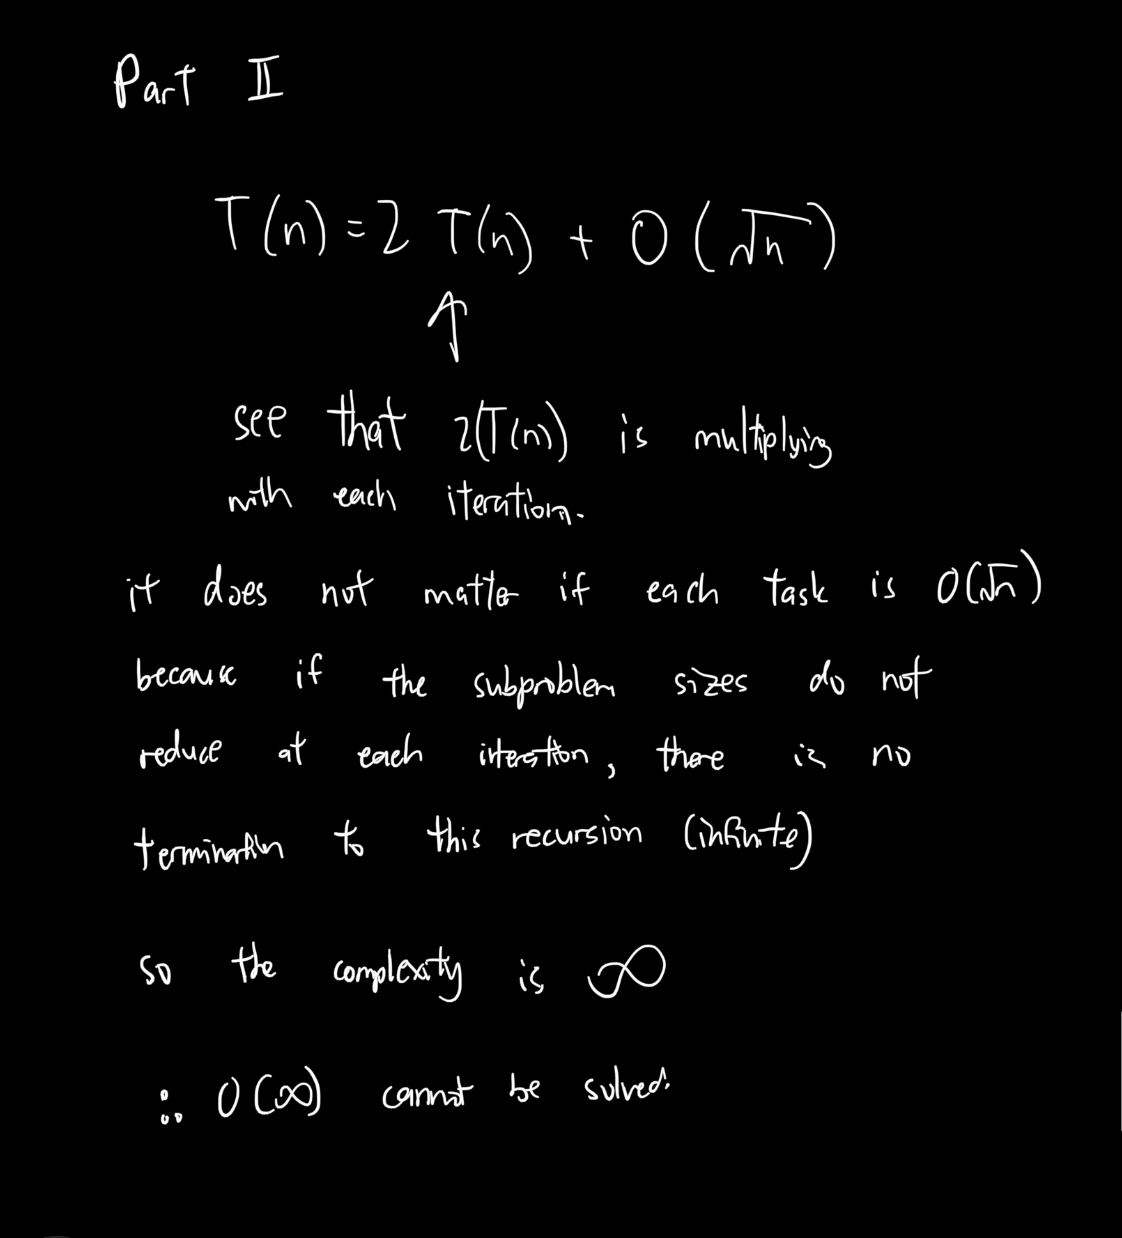 Part II
T(n) = 2 T(n) + O(√n)
↑
see that 2(T(n)) is multiplying
with each iteration.
it does not matter if each task is O(√n)
because if the subproblem sizes do not
reduce at each iteration, there is no
termination to this recursion (infinite)
so the complexity is ∞
∴ O(∞) cannot be solved.